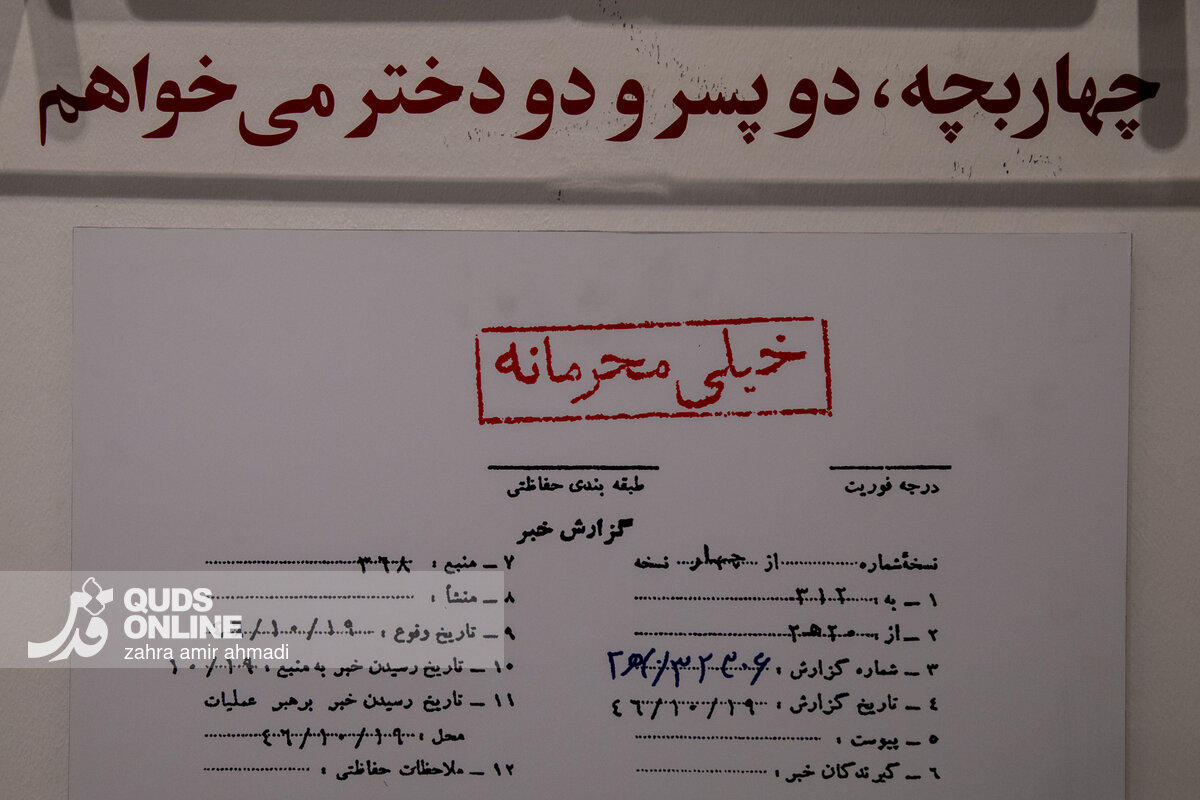 چهار بچه، دو پسر و دو دختر می‌خواهم
خیلی محرمانه
درجه فوریت
طبقه بندی حفاظتی
گزارش خبر
نسخهٔ شماره ........ از ... چهار ... نسخه
۱ ــ به : ۳۱۲
۲ ــ از : ۲۰ه۲
۳ ــ شماره گزارش :
۴ ــ تاریخ گزارش : ۴۶/۱۰/۱۹
۵ ــ پیوست :
۶ ــ گیرندگان خبر :
۷ ــ منبع : ۳۶۸
۸ ــ منشأ :
۹ ــ تاریخ وقوع : /۱۰/۱۹
۱۰ ــ تاریخ رسیدن خبر به منبع : ۱۰/۱۹
۱۱ ــ تاریخ رسیدن خبر برهبر عملیات
محل : ۴۶/۱۰/۱۹
۱۲ ــ ملاحظات حفاظتی :
قدس
QUDS
ONLINE
zahra amir ahmadi